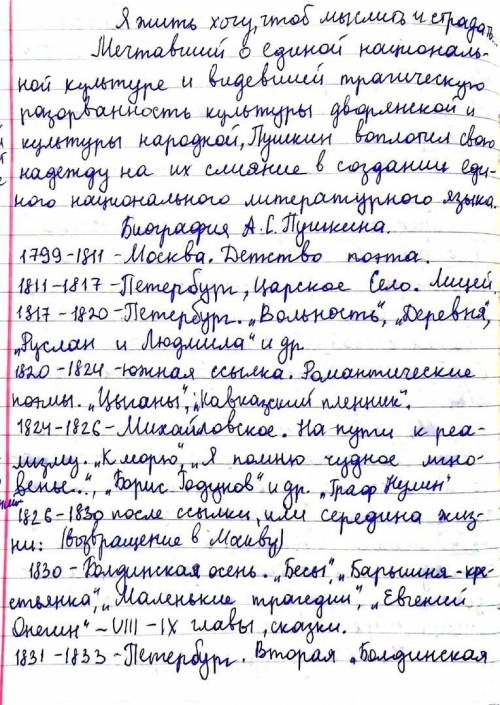 Я жить хочу, чтоб мыслить и страдать...
Мечтавший о единой националь-
ной культуре и видевшей трагическую
разорванность культуры дворянской и
культуры народной, Пушкин воплотил свою
надежду на их слияние в создании еди-
ного национального литературного языка.
Биография А.С. Пушкина.
1799-1811-Москва. Детство поэта.
1811-1817-Петербург, Царское Село. Лицей.
1817-1820-Петербург. „Вольность", „Деревня",
„Руслан и Людмила" и др
1820-1824-южная ссылка. Романтические
поэмы. „Цыганы", „Кавказский пленник".
1824-1826-Михайловское. На пути к реа-
лизму. „К морю", „Я помню чудное мгно-
венье...", „Борис Годунов" и др. „Граф Нулин"
1826-1830 после ссылки, или середина жиз-
ни: (возвращение в Москву)
1830-Болдинская осень. „Бесы", „Барышня-кре-
стьянка", „Маленькие трагедии", „Евгений
Онегин"-VIII-IX главы, сказки.
1831-1833-Петербург. Вторая „Болдинская